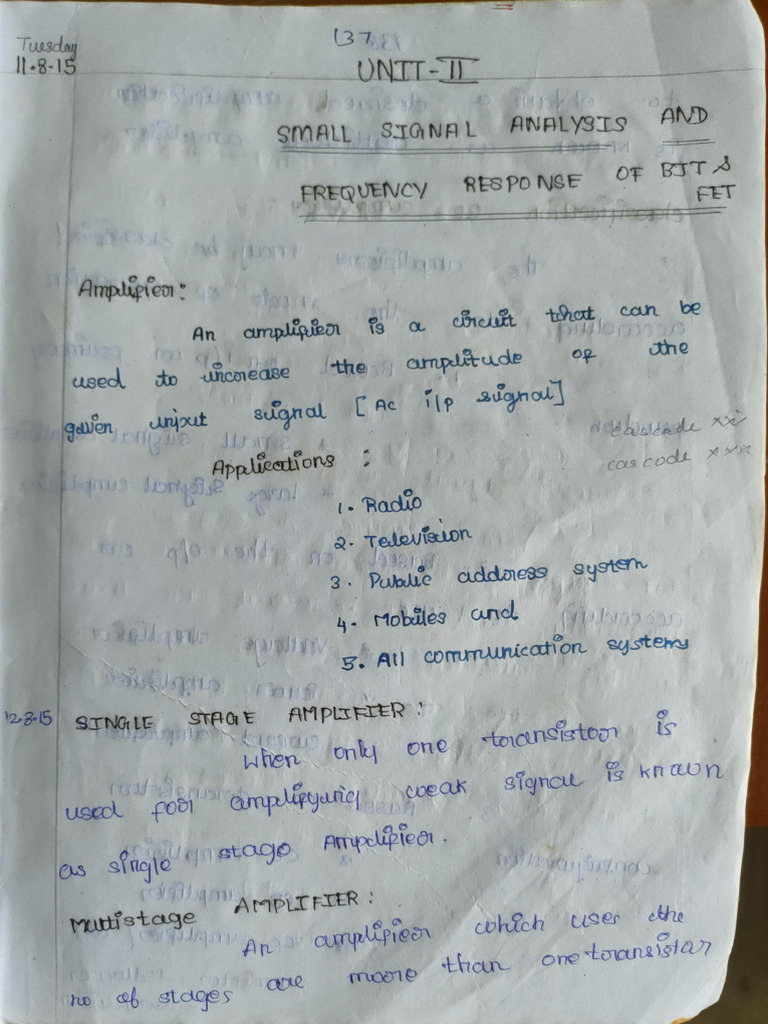 137
Tuesday
11-8-15
UNIT-II
SMALL SIGNAL ANALYSIS AND
FREQUENCY RESPONSE OF BJT & FET
Amplifier:
An amplifier is a circuit that can be
used to increase the amplitude of the
given input signal [Ac i/p signal]
cascade xxx
cascode xxx
Applications :
1. Radio
2. Television
3. Public address system
4. Mobiles and
5. All communication systems
12-8-15 SINGLE STAGE AMPLIFIER:
When only one transistor is
used for amplifying weak signal is known
as single stage Amplifier.
Multistage AMPLIFIER:
An amplifier which uses the
no of stages are more than one transistor